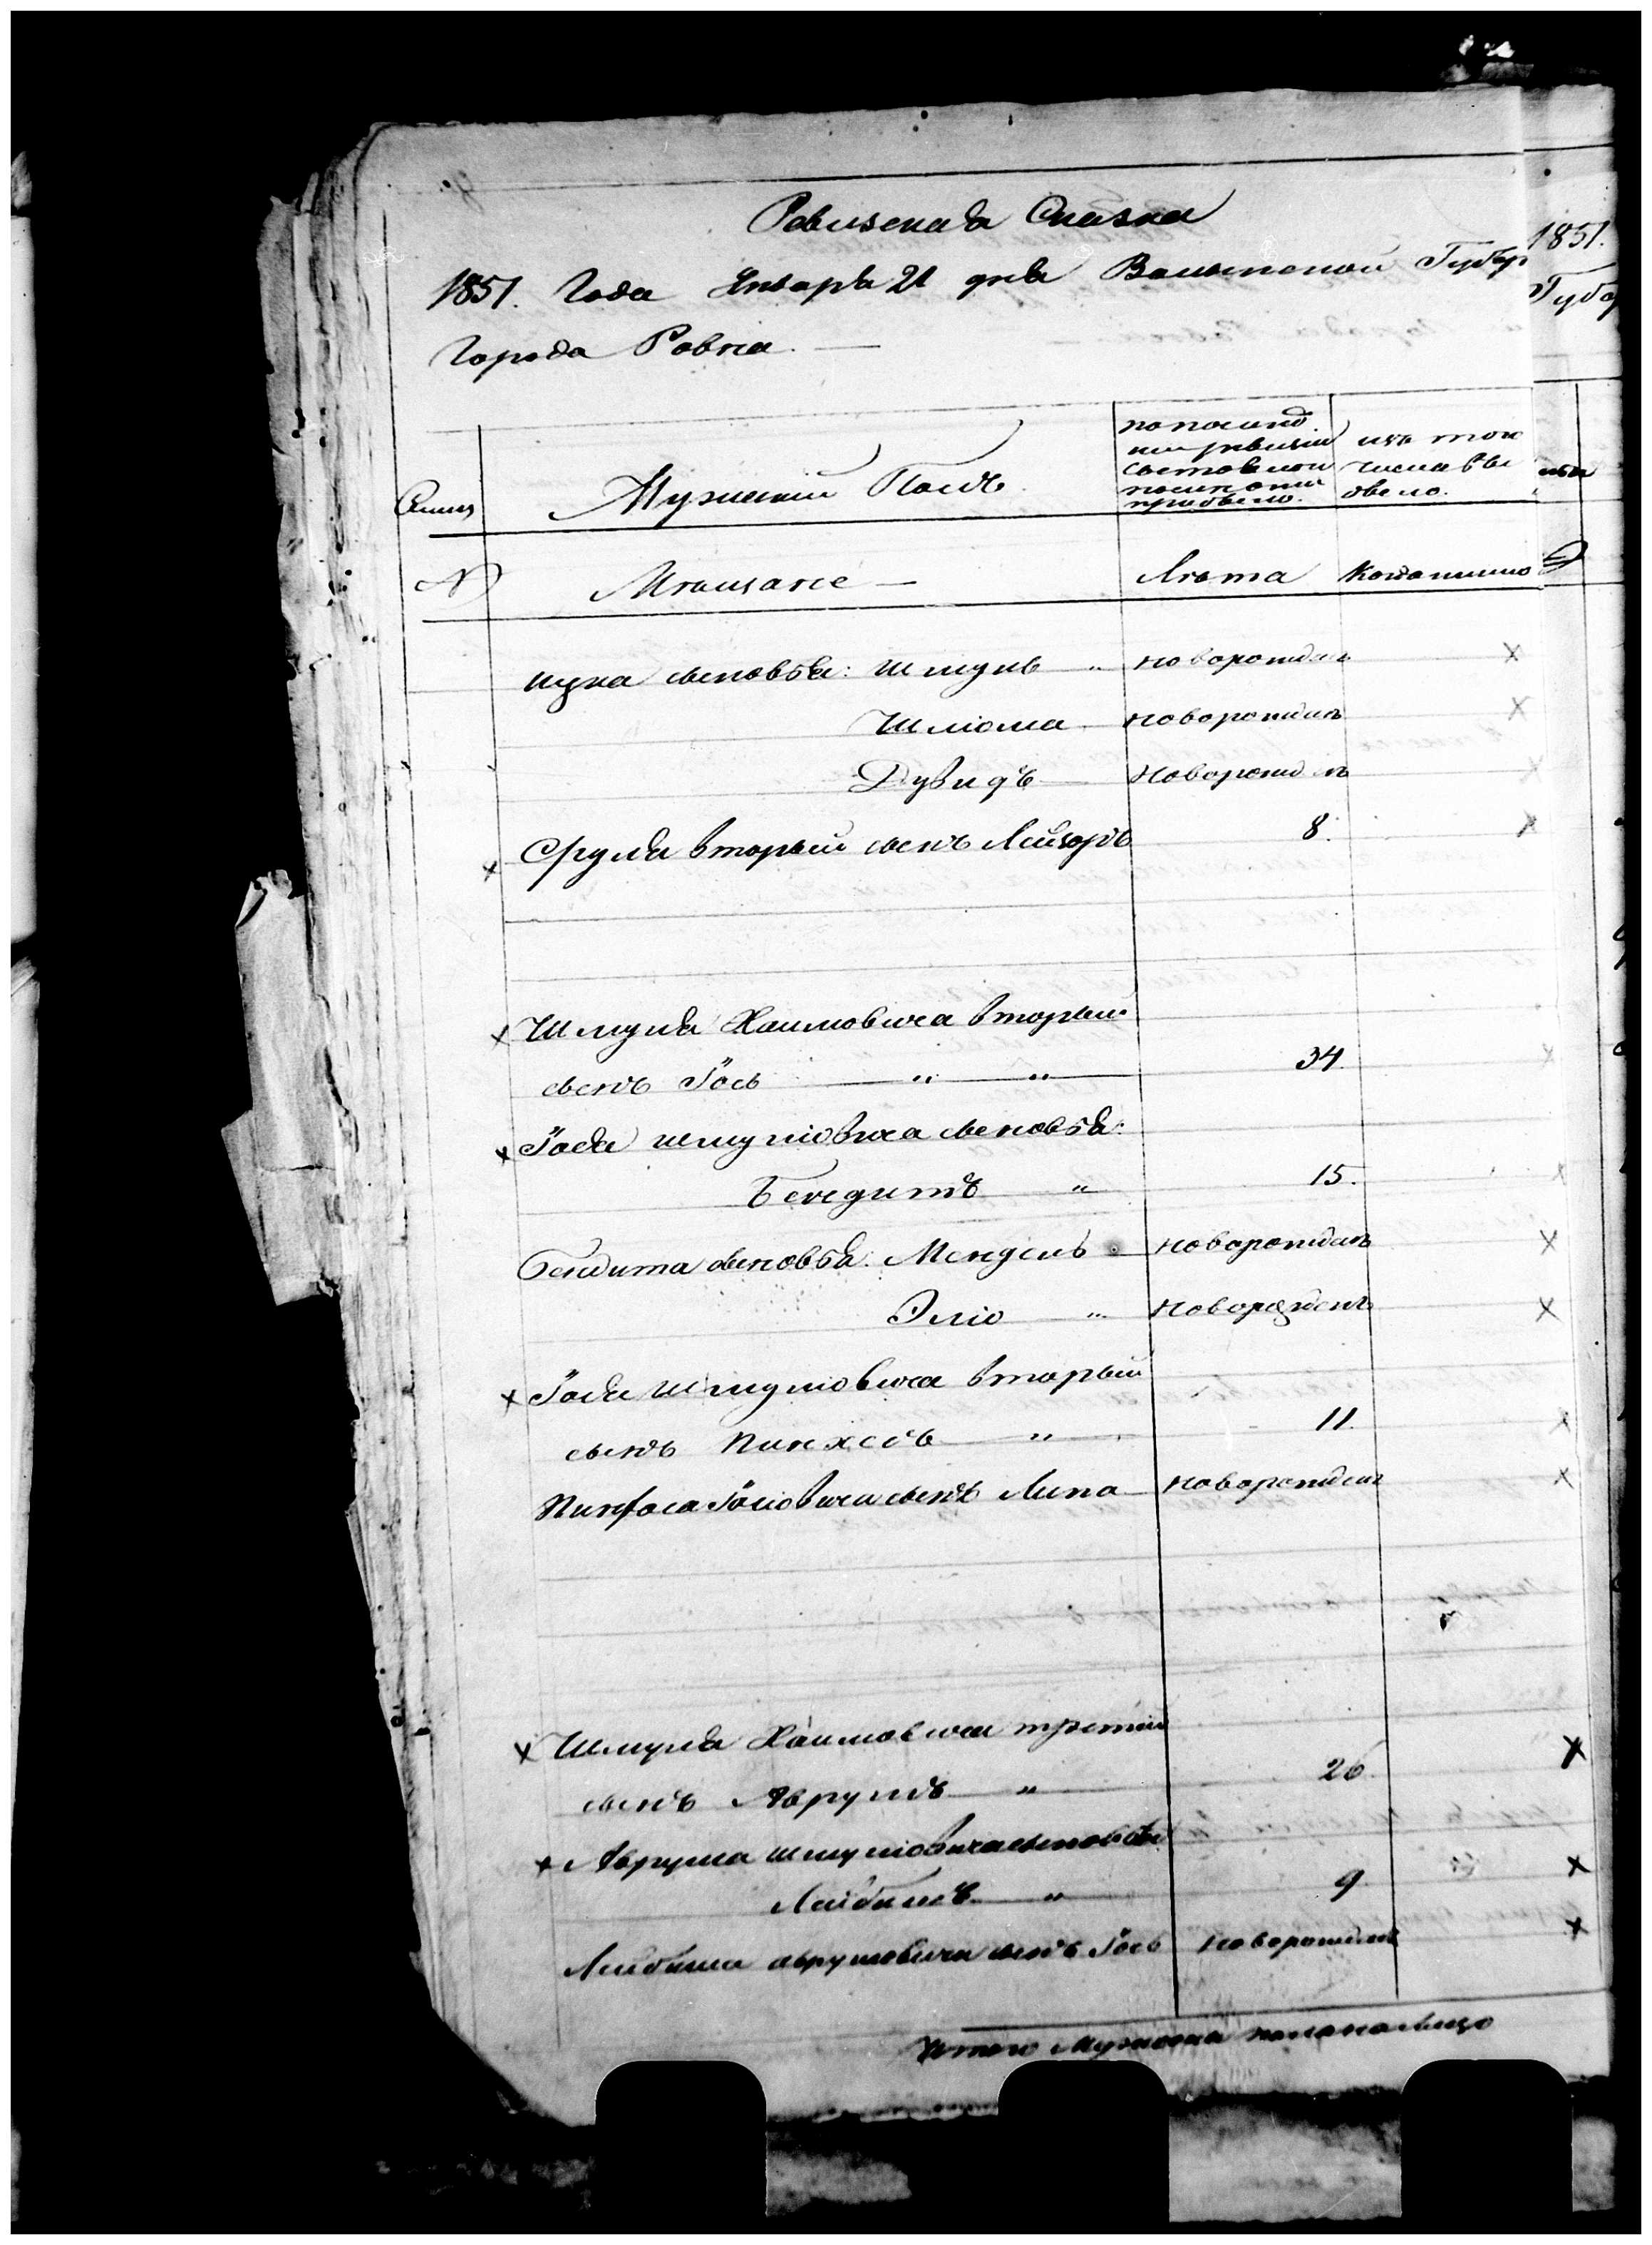 Ревизская Сказка
1851.
1851. Года Января 21 дня Волынской Губер
Губер
Города Ровна. —
Семьи Мужеский Полъ. по послѣд ней ревизіи состояло и послѣ оной прибыло. изъ того числа вы было.
№ Мѣщане — Лѣта Когда именно
Ицка сыновья: Шмуль " новорожден
Шліома новорожденъ
Дувидъ новорожденъ
х Сруля вторый сынъ Лейзоръ 8.
х Шмуля Хаимовича вторый
сынъ Іось " " 34.
х Іося Шмуліовича сыновья:
Бенедитъ " 15.
Бендита сыновья: Мендель новорожденъ
Эліо " новорожденъ
х Іося Шмуліовича вторый
сынъ Пинхосъ " 11.
Пинхоса Іосіовича сынъ Липа новорожден
х Шмуля Хаимовича третій
сынъ Аврумъ " 26.
х Аврума Шмуліовича сыновья
Лейбишъ " 9
Лейбиша Аврумовича сынъ Іось новорожденъ
Итого Мужеска пола на лицо